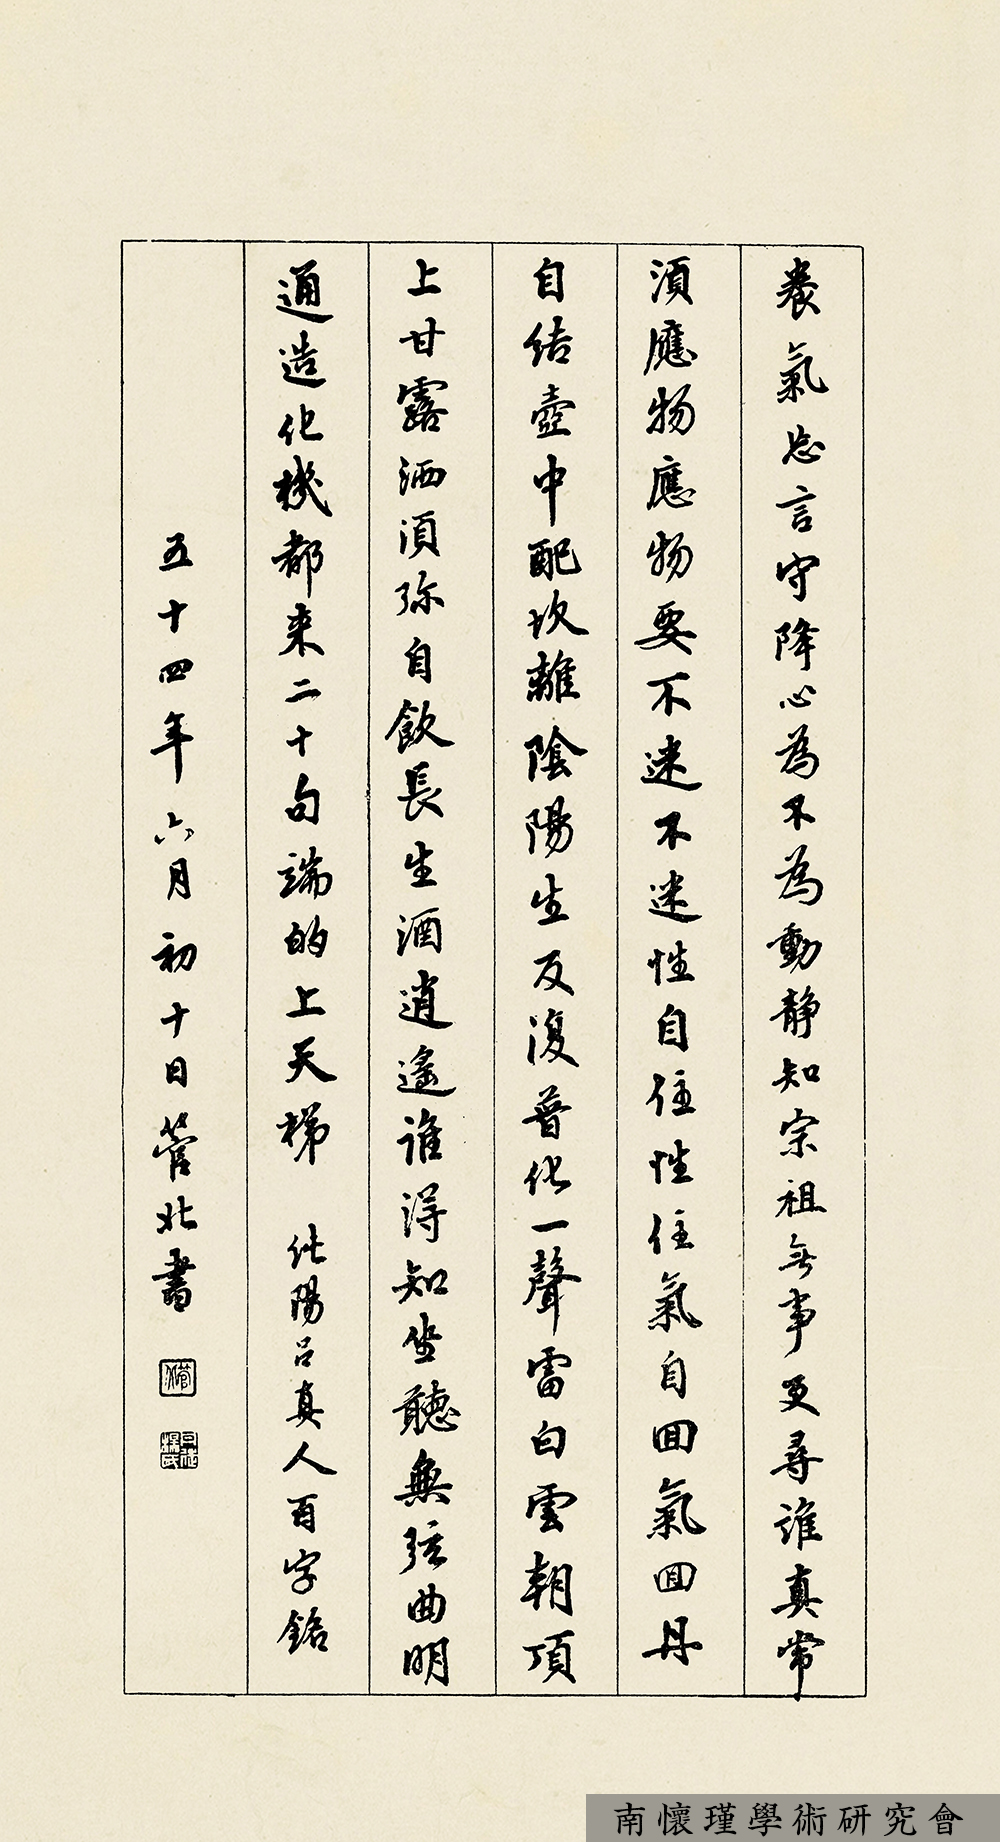 養氣忘言守降心為不為動靜知宗祖無事更尋誰真常
須應物應物要不迷不迷性自住性住氣自回氣回丹
自結壺中配坎離陰陽生反復普化一聲雷白雲朝頂
上甘露洒須弥自飲長生酒逍遙誰得知坐聽無弦曲明
通造化機都来二十句端的上天梯 純陽呂真人百字銘
五十四年六月初十日管北書
南懷瑾學術研究會